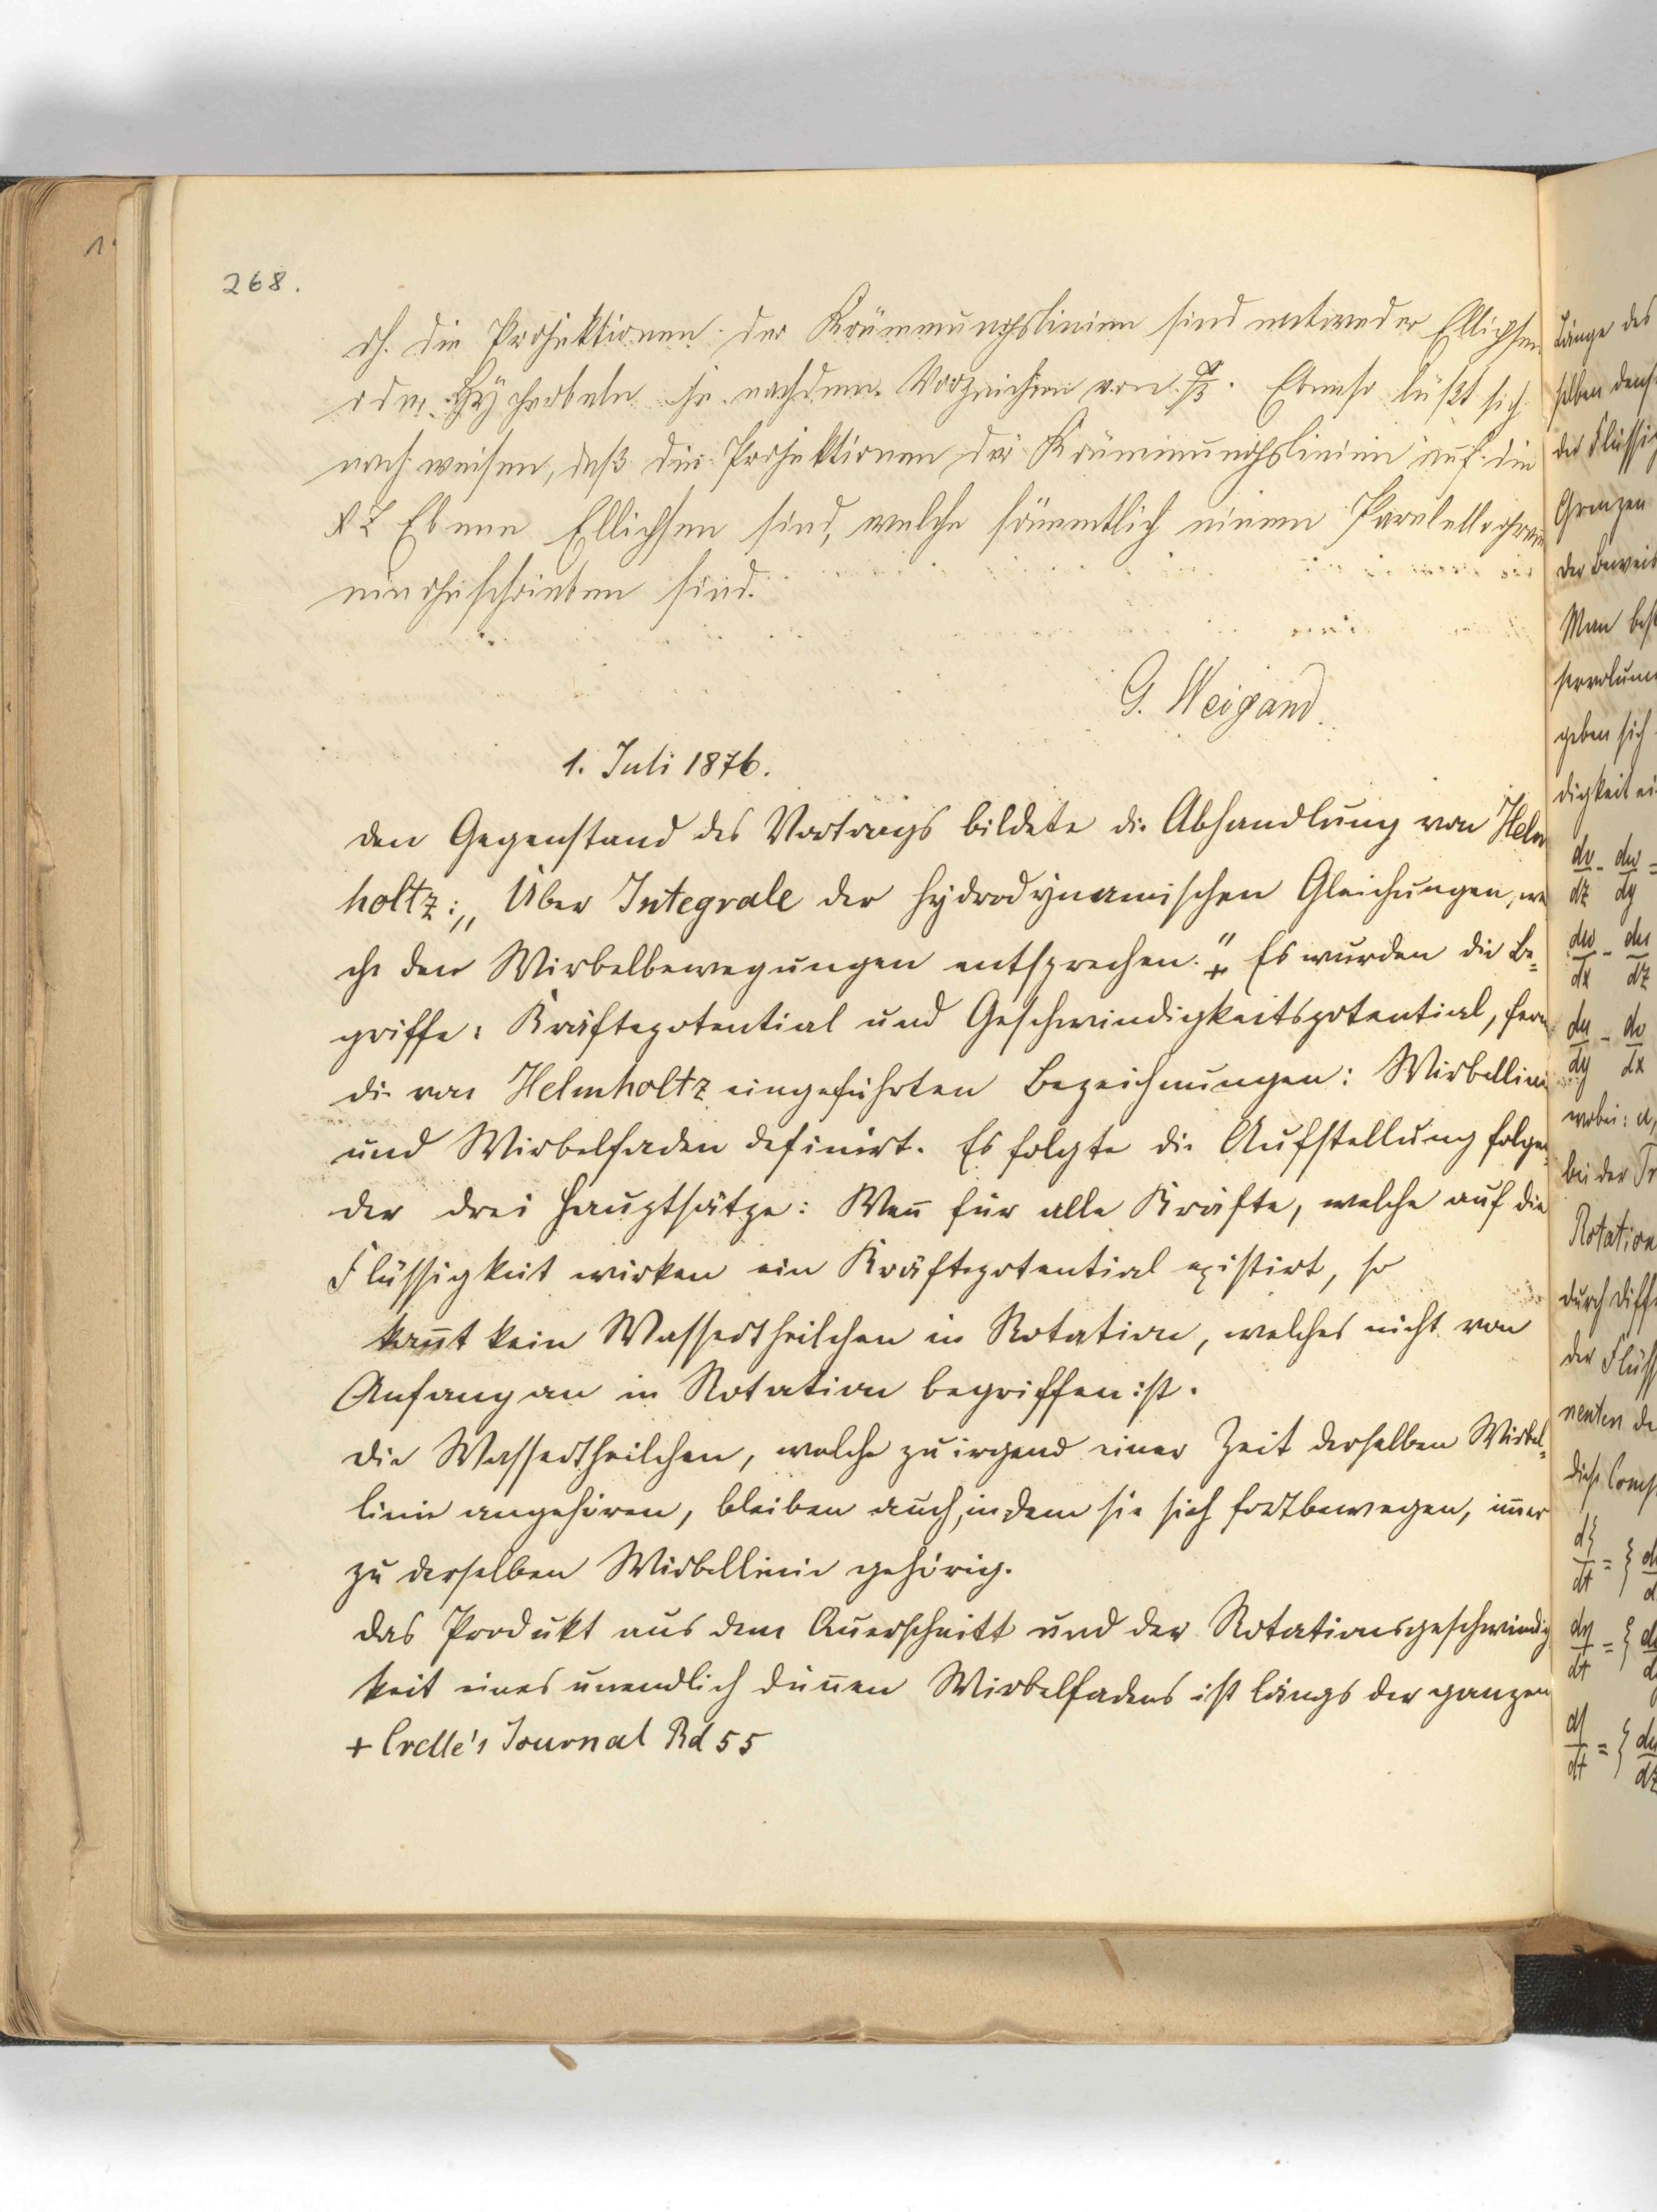 268.
dh. die Projektionen der Krümmungslinien sind entweder Ellipsen
oder Hyperbeln je nach dem Vorzeichen von α/β. Ebenso läßt sich
nach weisen, daß die Projektionen der Krümmungslinien auf die
XZ Ebene Ellipsen sind, welche sämmtlich einem Paralellogram
eingeschrieben sind.
G. Weigand.
1. Juli 1876.
Den Gegenstand des Vortrags bildete die Abhandlung von Helm
holtz: „Über Integrale der hydrodynamischen Gleichungen, wel
che den Wirbelbewegungen entsprechen."+ Es wurden die Be=
griffe: Kräftepotential und Geschwindigkeitspotential, fern
die von Helmholtz eingeführten Bezeichnungen: Wirbellinie
und Wirbelfaden definirt. Es folgte die Aufstellung folgen=
der drei Hauptsätze: Weñ für alle Kräfte, welche auf die
Flüssigkeit wirken ein Kräftepotential existirt, so
kom̄t kein Wassertheilchen in Rotation, welches nicht von
Anfang an in Rotation begriffen ist.
Die Wassertheilchen, welche zu irgend einer Zeit derselben Wirbel=
linie angehören, bleiben auch, indem sie sich fortbewegen, im̄er
zu derselben Wirbellinie gehörig.
Das Produkt aus dem Querschnitt und der Rotationsgeschwindig
keit eines unendlich düñen Wirbelfadens ist längs der ganzen
+ Crelle's Journal Bd 55
Länge des
selben dens
der Flüssig
Grenzen
Der Beweis
Man
geben sich
digkeit ei
dv/dz - dw/dy =
dw/dx - du/dz
du/dy - dv/dx
wobei: u,
bei der Tr
Rotation
durch Diff
der Flüss
nenten de
diese Comp
dξ/dt = ξ
dη/dt = ξ
dζ/dt = ξ du/dz